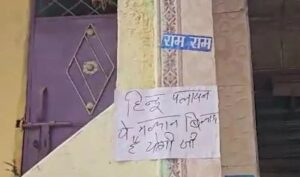 राम राम
हिन्दू पलायन
ये मकान बिकाऊ
है योगी जी